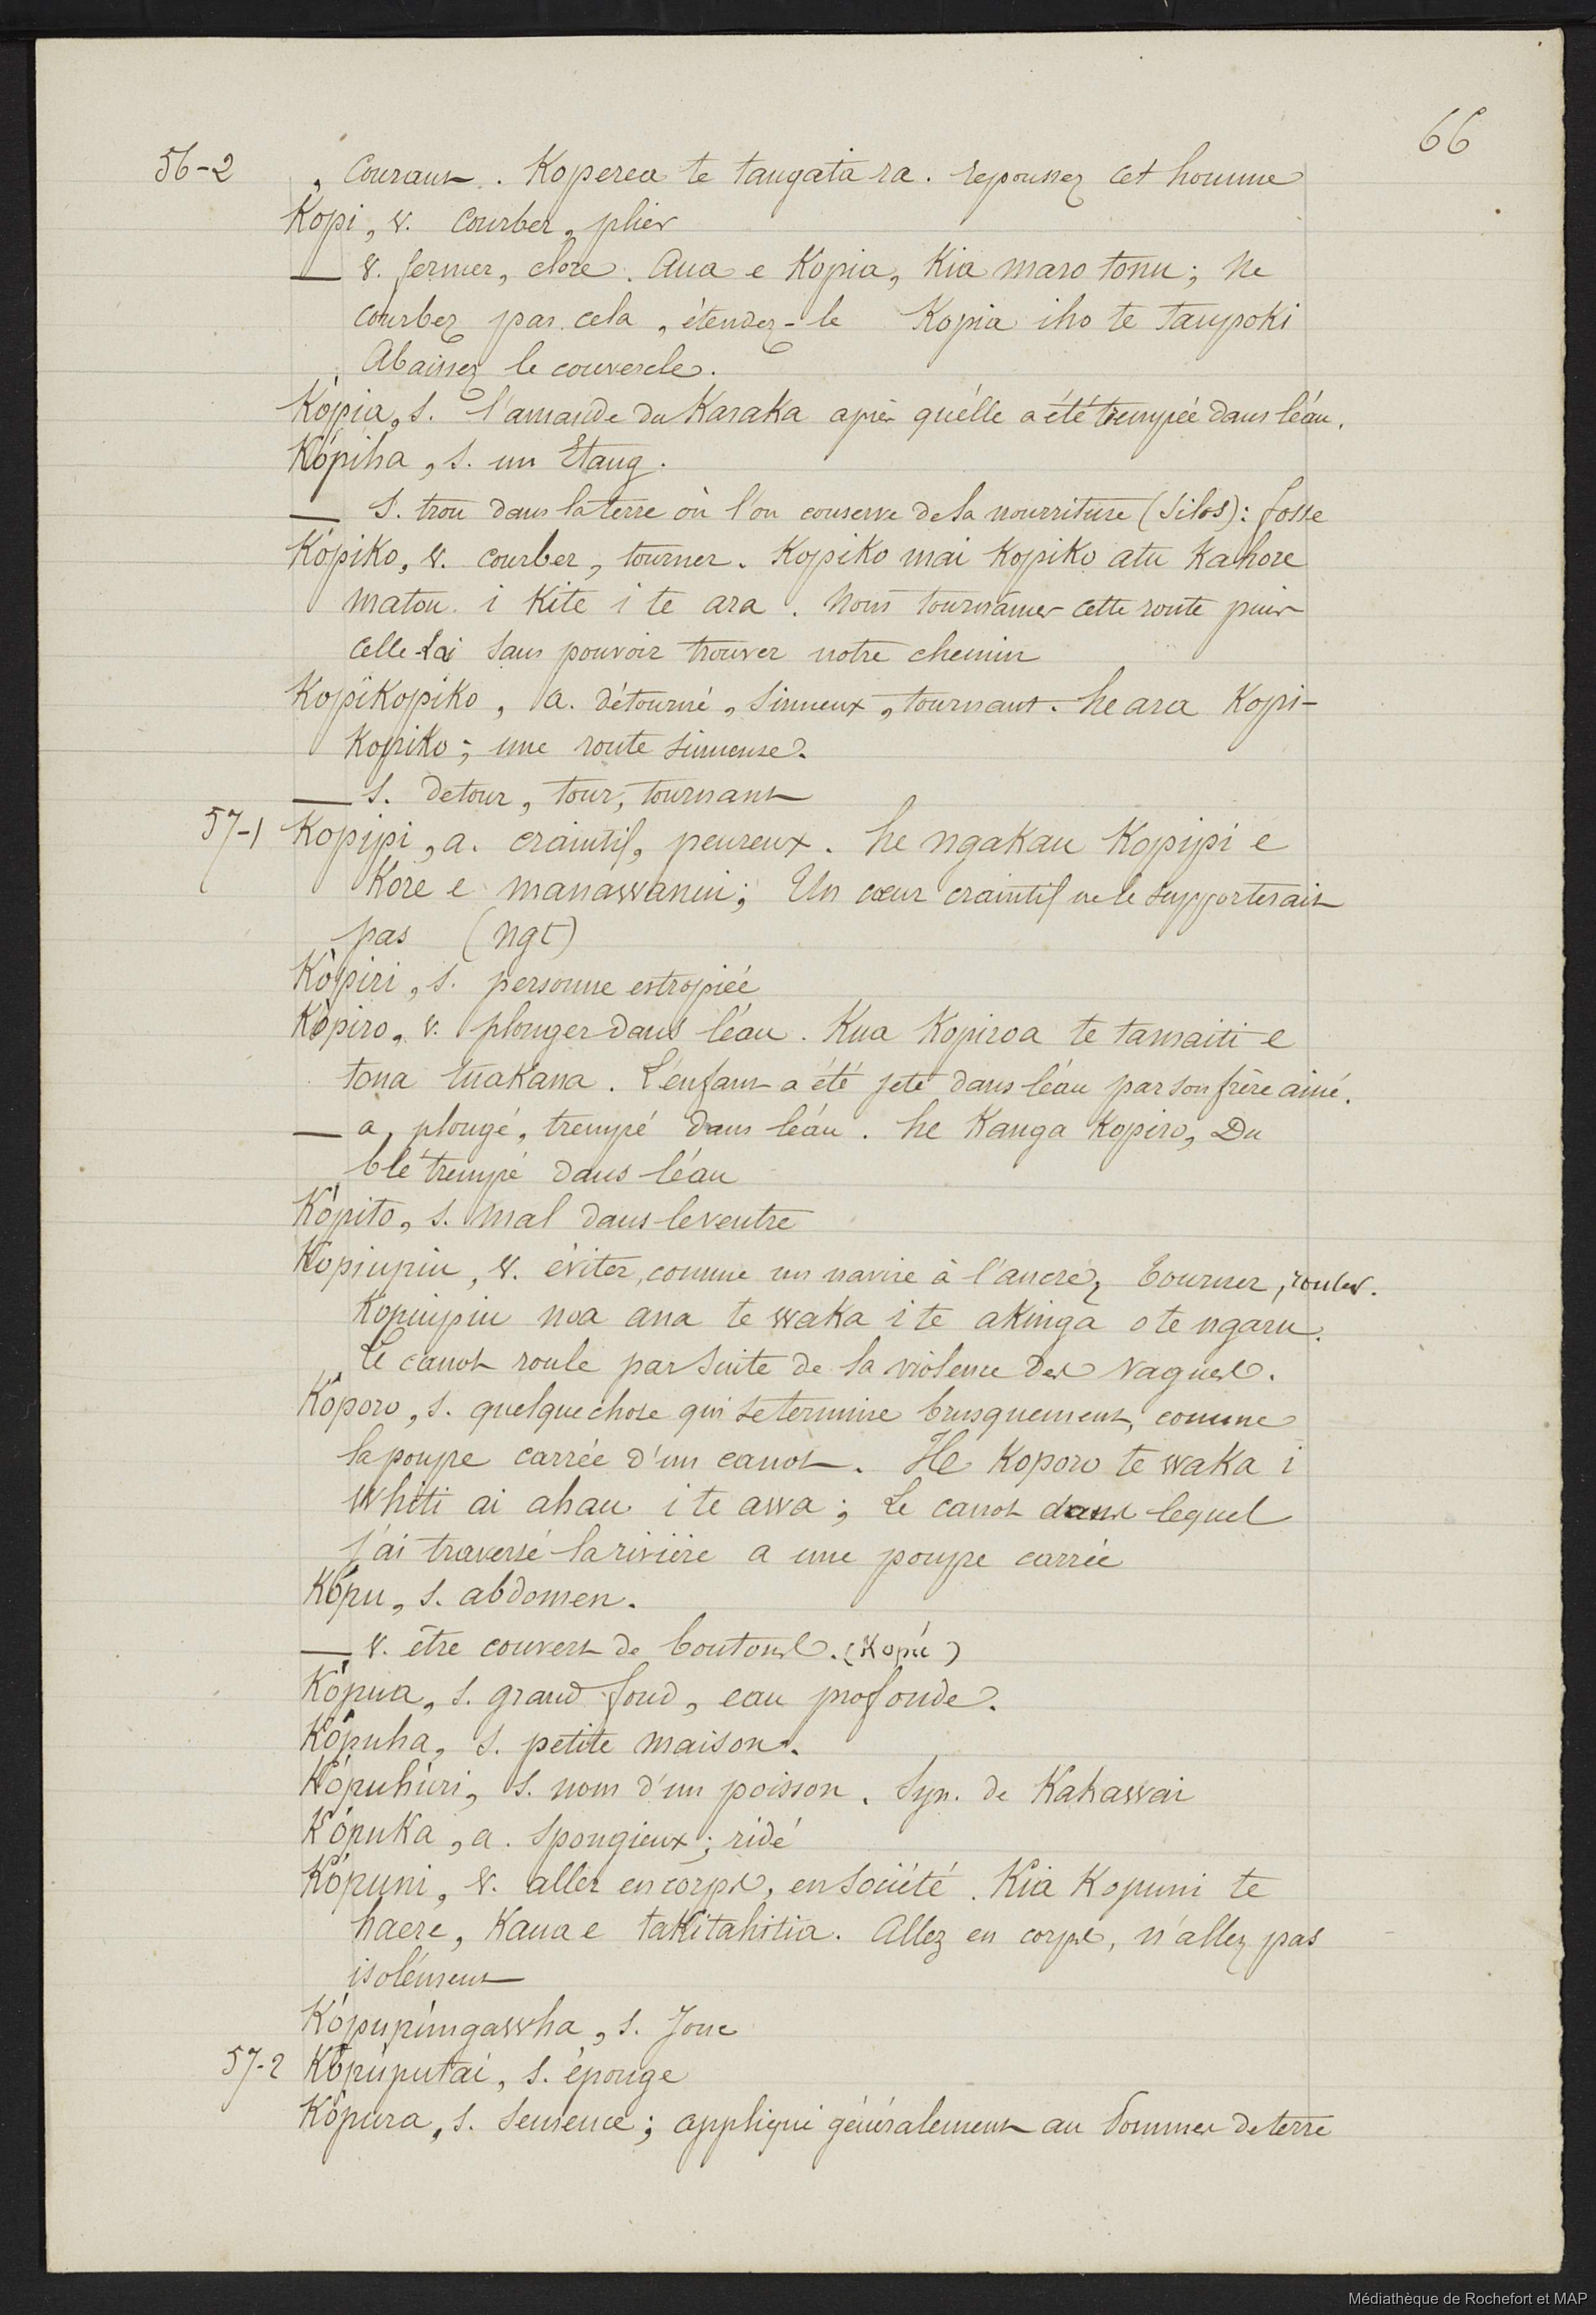 66
56-2 , Courant. Koperea te tangata ra. repoussez cet homme
Kopi, v. Courber, plier
— v. fermer, clore. Aua e Kopia, Kia maro tonu; Ne
courbez pas cela, étendez-le Kopia iho te taupoki
Abaissez le couvercle.
Kópia, s. l'amande du Karaka après qu'élle a été trempée dans léau.
Kópiha, s. un Etang.
— S. trou dans la terre où l'on conserve de la nourriture (Silos): fosse
Kópiko, v. courber, tourner. Kopiko mai Kopiko atu Kahore
matou i Kite i te ara. Nous tournâmes cette route puis
celle-lai sans pouvoir trouver notre chemin
Kopikopiko, a. détourné, sinueux, tournant. he ara Kopi-
Kopiko; une route sinueuse.
— s. detour, tour, tournant
57-1 Kopipi, a. craintif, peureux. he ngakau Kopipi e
Kore e manawanui; Un cœur craintif ne le supporterait
pas (ngt)
Kòpiri, s. personne estropiée
Kòpiro, v. plonger dans léau. Kua Kopiroa te tamaiti e
tona tuakana. L'enfant a été jeté dans léau par son frère ainé.
— a, plongé, trempé dans léau. he Kanga Kopiro, Du
blé trempé dans léau
Kòpito, s. mal dans le ventre
Kopiupiu, v. éviter, comme un navire à l'ancre, tourner, rouler.
Kopiupiu noa ana te waka i te akinga o te ngaru.
Le canot roule par suite de la violence des vagues.
Kóporo, s. quelque chose qui se termine brusquement, comme
la poupe carrée d'un canot. He Koporo te waka i
whiti ai ahau i te awa; Le canot dans lequel
j'ai traversé la rivière a une poupe carrée
Kópu, s. abdomen.
— v. être couvert de boutons. (Kopú)
Kópua, s. grand fond, eau profonde.
Kópuha, s. petite maison.
Kópuhúri, s. nom d'un poisson. Syn. de Kahawai
Kópuka, a. Spongieux; ridé
Kópuni, v. aller en corps, en société. Kia Kopuni te
haere, Kaua e takitahitia. Allez en corps, n'allez pas
isolément
Kópupúngawha, s. Jonc
57-2 Kópúputai, s. éponge
Kópura, s. semence; appliqué généralement au Pommes de terre
Médiathèque de Rochefort et MAP